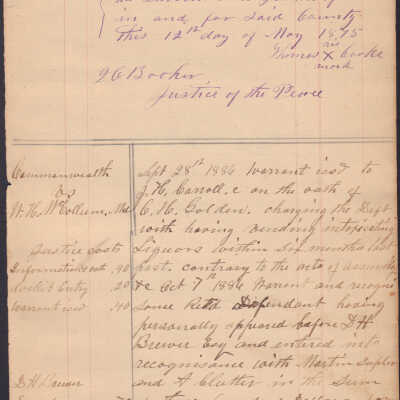 in and for said County
this 12th day of May 1875
his
Thomas X Cooke
mark
Justice of the Peace
Commonwealth
vs
W. H. McCollum
Justice Costs
Information & oath 40
Docket Entry 20
Warrant issd 40
D. H. Brewer
Sept 28th 1886 Warrant issd to
J. H. Carroll. c on the oath of
C. H. Golden. charging the Deft
with having vending intoxicating
Liquors within six months last
past. contrary to the acts of
Oct 7th 1886 Warrant and
Defendant having
personally appeared before D H
Brewer Esq and entered into
recognisance with Martin
and A Clutter in the sum